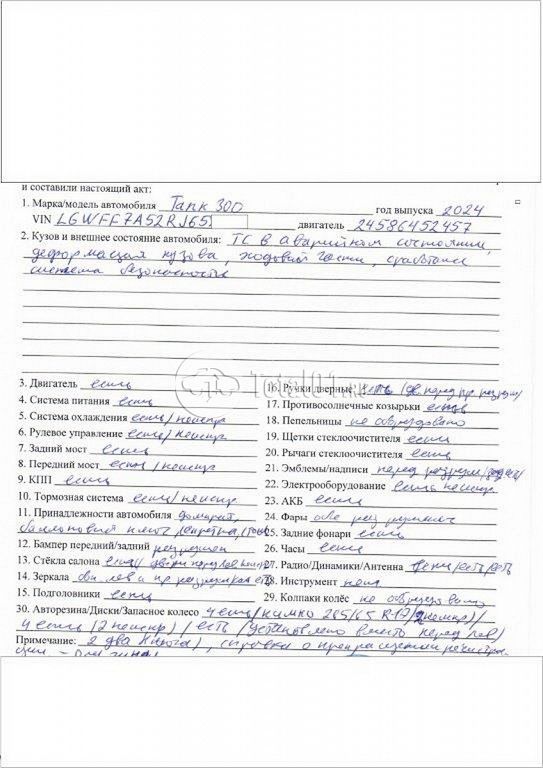 и составили настоящий акт:
1. Марка/модель автомобиля Танк 300 год выпуска 2024
VIN LGWFF7A52RJ65 двигатель 24586452457
2. Кузов и внешнее состояние автомобиля: ТС в аварийном состоянии,
деформация кузова, ходовой части, сработана
система безопасности
3. Двигатель есть
4. Система питания есть
5. Система охлаждения есть/неиспр
6. Рулевое управление есть/неиспр
7. Задний мост есть
8. Передний мост есть/неиспр
9. КПП есть
10. Тормозная система есть/неиспр
11. Принадлежности автомобиля домкрат,
баллонный ключ
12. Бампер передний/задний разрушен
13. Стёкла салона есть/
14. Зеркала
15. Подголовники есть
16. Ручки дверные есть
17. Противосолнечные козырьки есть
18. Пепельницы не оборудовано
19. Щетки стеклоочистителя есть
20. Рычаги стеклоочистителя есть
21. Эмблемы/надписи перед разрушен/
22. Электрооборудование есть неиспр
23. АКБ есть
24. Фары обе разрушены
25. Задние фонари есть
26. Часы есть
27. Радио/Динамики/Антенна есть/есть/есть
28. Инструмент
29. Колпаки колёс не оборудовано
30. Авторезина/Диски/Запасное колесо 4 есть/кумхо 265/65 R17/2 неиспр)/
4 есть (2 неиспр) / есть (установлено вместо перед лев)
Примечание: 2 два ключа), справка о прекращении регистра-
ции -
Total01.ru